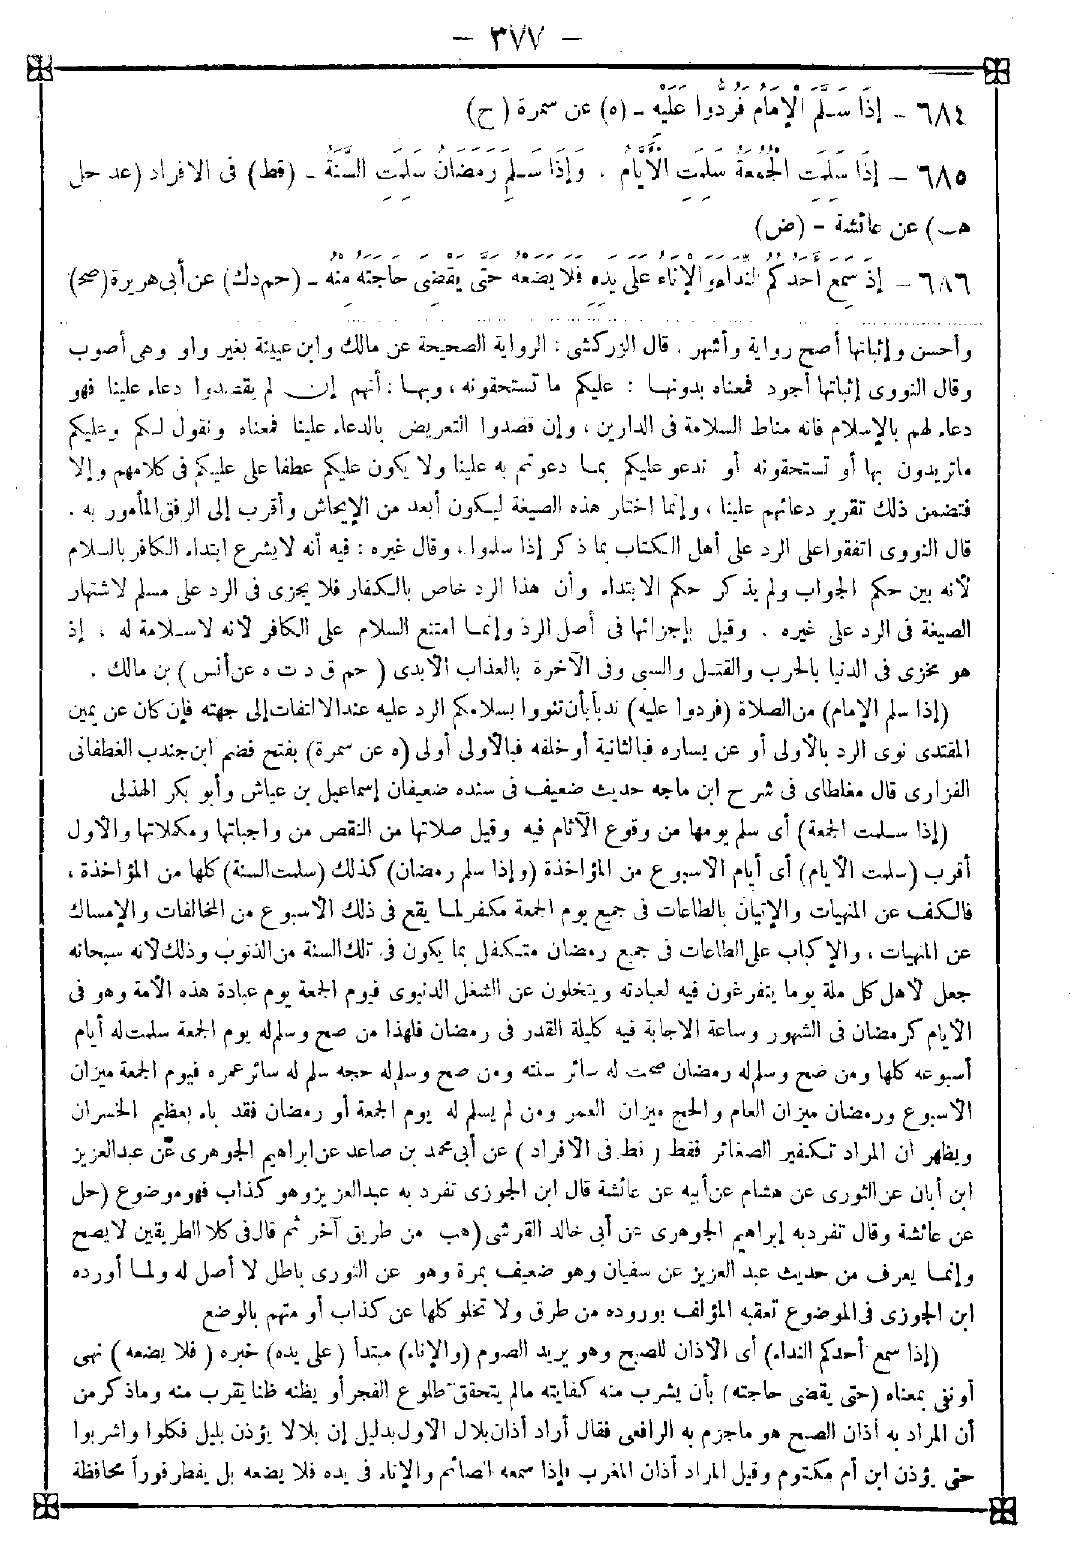 – ٣٧٧ –
٦٨٤ – إِذَا سَلَّمَ الْإِمَامُ فَرُدُّوا عَلَيْهِ – (ه) عن سمرة (ح)
٦٨٥ – إِذَا سَلِمَتِ الْجُمُعَةُ سَلِمَتِ الْأَيَّامُ ، وَإِذَا سَلِمَ رَمَضَانُ سَلِمَتِ السَّنَةُ – (قط) فى الافراد (عد حل
هب) عن عائشة – (ض)
٦٨٦ – إِذَا سَمِعَ أَحَدُكُمُ النِّدَاءَ وَالْإِنَاءُ عَلَى يَدِهِ فَلَا يَضَعْهُ حَتَّى يَقْضِىَ حَاجَتَهُ مِنْهُ – (حم د ك) عن أبى هريرة (صح)
وأحسن وإثباتها أصح رواية وأشهر . قال الزركشى : الرواية الصحيحة عن مالك وابن عيينة بغير واو وهى أصوب
وقال النووى إثباتها أجود فمعناه بدونها : عليكم ما تستحقونه ، وبها : أنهم إن لم يقصدوا دعاء علينا فهو
دعاء لهم بالإسلام فانه مناط السلامة فى الدارين ، وإن قصدوا التعريض بالدعاء علينا فمعناه ونقول لكم وعليكم
ماتريدون بها أو تستحقونه أو ندعو عليكم بما دعوتم به علينا ولا يكون عليكم عطفا على عليكم فى كلامهم وإلا
فتضمن ذلك تقرير دعائهم علينا ، وإنما اختار هذه الصيغة ليكون أبعد من الإيحاش وأقرب إلى الرفق المأمور به .
قال النووى اتفقوا على الرد على أهل الكتاب بما ذكر إذا سلموا ، وقال غيره : فيه أنه لا يشرع ابتداء الكافر بالسلام
لأنه بين حكم الجواب ولم يذكر حكم الابتداء وأن هذا الرد خاص بالكفار فلا يجزى فى الرد على مسلم لاشتهار
الصيغة فى الرد على غيره . وقيل بإجزائها فى أصل الرد وإنما امتنع السلام على الكافر لأنه لاسلامة له ، إذ
هو مخزى فى الدنيا بالحرب والقتل والسبى وفى الآخرة بالعذاب الأبدى ( حم ق د ت ه عن أنس ) بن مالك .
(إذا سلم الإمام) من الصلاة (فردوا عليه) ندبا بأن تنووا بسلامكم الرد عليه عند الالتفات إلى جهته فإن كان عن يمين
المقتدى نوى الرد بالأولى أو عن يساره فبالثانية أو خلفه فبالأولى أولى (ه عن سمرة) بفتح فضم ابن جندب الغطفانى
الفزارى قال مغلطاى فى شرح ابن ماجه حديث ضعيف فى سنده ضعيفان إسماعيل بن عياش وأبو بكر الهذلى
(إذا سلمت الجمعة) أى سلم يومها من وقوع الآثام فيه وقيل صلاتها من النقص من واجباتها ومكملاتها والأول
أقرب (سلمت الأيام) أى أيام الأسبوع من المؤاخذة (وإذا سلم رمضان) كذلك (سلمت السنة) كلها من المؤاخذة ،
فالكف عن المنهيات والإتيان بالطاعات فى جميع يوم الجمعة مكفر لما يقع فى ذلك الأسبوع من المخالفات والإمساك
عن المنهيات ، والإكباب على الطاعات فى جميع رمضان متكفل بما يكون فى تلك السنة من الذنوب وذلك لأنه سبحانه
جعل لأهل كل ملة يوما يتفرغون فيه لعبادته ويتخلون عن الشغل الدنيوى فيوم الجمعة يوم عبادة هذه الأمة وهو فى
الأيام كرمضان فى الشهور وساعة الاجابة فيه كليلة القدر فى رمضان فلهذا من صح وسلم له يوم الجمعة سلمت له أيام
أسبوعه كلها ومن صح وسلم له رمضان صحت له سائر سنته ومن صح وسلم له حجه سلم له سائر عمره فيوم الجمعة ميزان
الأسبوع ورمضان ميزان العام والحج ميزان العمر ومن لم يسلم له يوم الجمعة أو رمضان فقد باء بعظيم الخسران
ويظهر ان المراد تكفير الصغائر فقط ( قط فى الافراد ) عن أبى محمد بن صاعد عن ابراهيم الجوهرى عن عبد العزيز
ابن أبان عن الثورى عن هشام عن أبيه عن عائشة قال ابن الجوزى تفرد به عبد العزيز وهو كذاب فهو موضوع (حل
عن عائشة وقال تفرد به إبراهيم الجوهرى عن أبى خالد القرشى (هب من طريق آخر ثم قال فى كلا الطريقين لا يصح
وإنما يعرف من حديث عبد العزيز عن سفيان وهو ضعيف بمرة وهو عن الثورى باطل لا أصل له ولما أورده
ابن الجوزى فى الموضوع تعقبه المؤلف بوروده من طرق ولا تخلو كلها عن كذاب أو متهم بالوضع
(إذا سمع أحدكم النداء) أى الأذان للصبح وهو يريد الصوم (والإناء) مبتدأ (على يده) خبره (فلا يضعه) نهى
أو نفى بمعناه (حتى يقضى حاجته) بأن يشرب منه كفايته مالم يتحقق طلوع الفجر أو يظنه ظنا يقرب منه وماذكر من
أن المراد به أذان الصبح هو ماجزم به الرافعى فقال أراد أذان بلال الأول بدليل إن بلالا يؤذن بليل فكلوا واشربوا
حتى يؤذن ابن أم مكتوم وقيل المراد أذان المغرب فإذا سمعه الصائم والإناء فى يده فلا يضعه بل يفطر فوراً محافظة